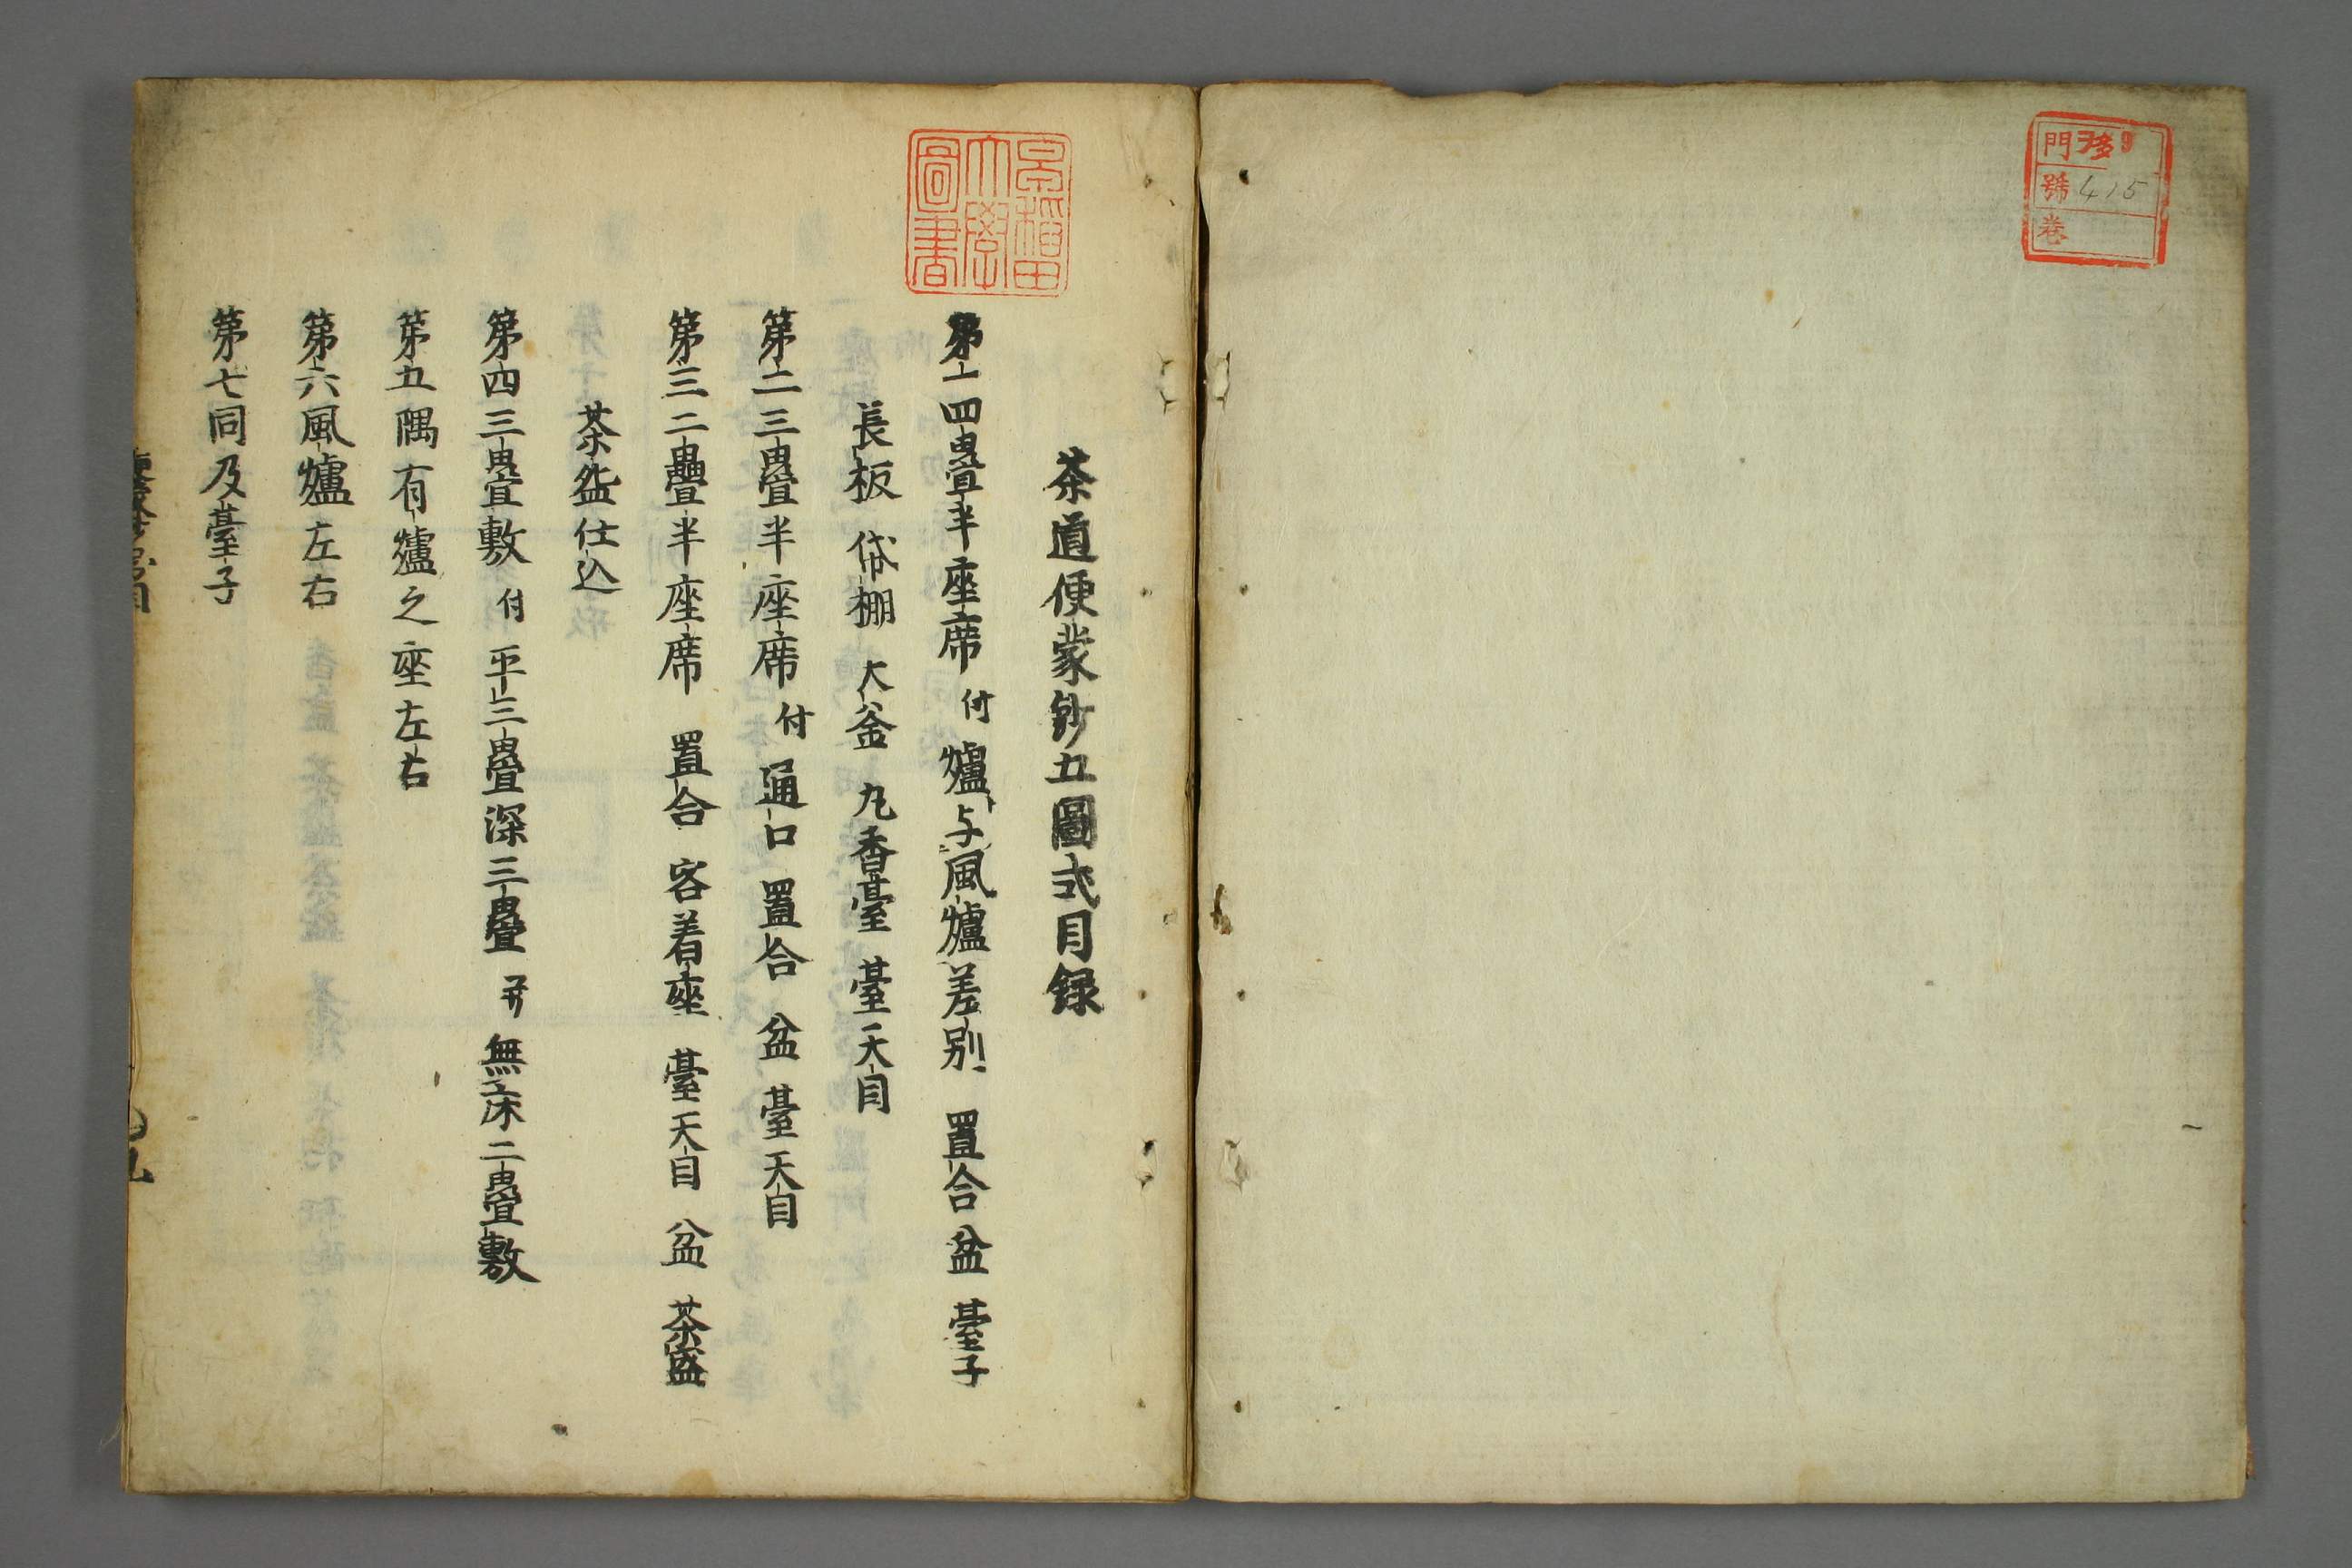 門 ヲ多9
號 415
卷
早稲田
大學
圖書
茶道便蒙鈔五圖式目録
第一四疊半座席 付 爐与風爐差別 置合 盆 臺子
長板 袋棚 大釜 丸香臺 臺天目
第二三疊半座席 付 通口 置合 盆 臺天目
第三二疊半座席 置合 客着座 臺天目 盆 茶盛
茶盆仕込
第四三疊敷 付 平三疊深三疊 并 無床二疊敷
第五隅有爐之座左右
第六風爐左右
第七同及臺子